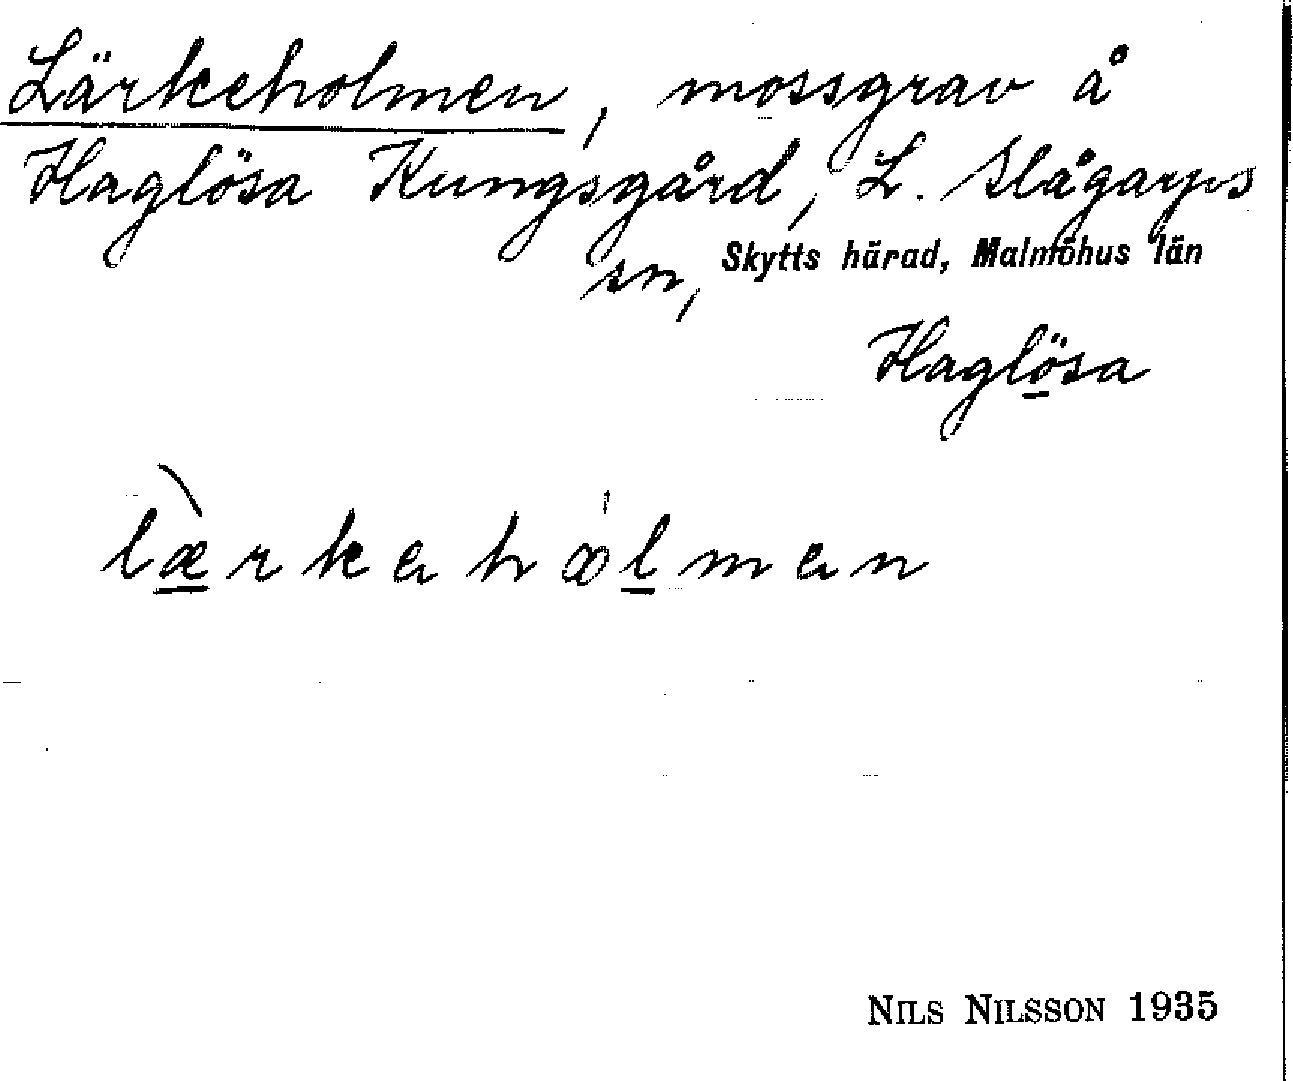 Lärkeholmen, mossgrav å
Haglösa Kungsgård, L. Slågarps
sn, Skytts härad, Malmöhus län
Haglösa
lærkəhålmən
NILS NILSSON 1935